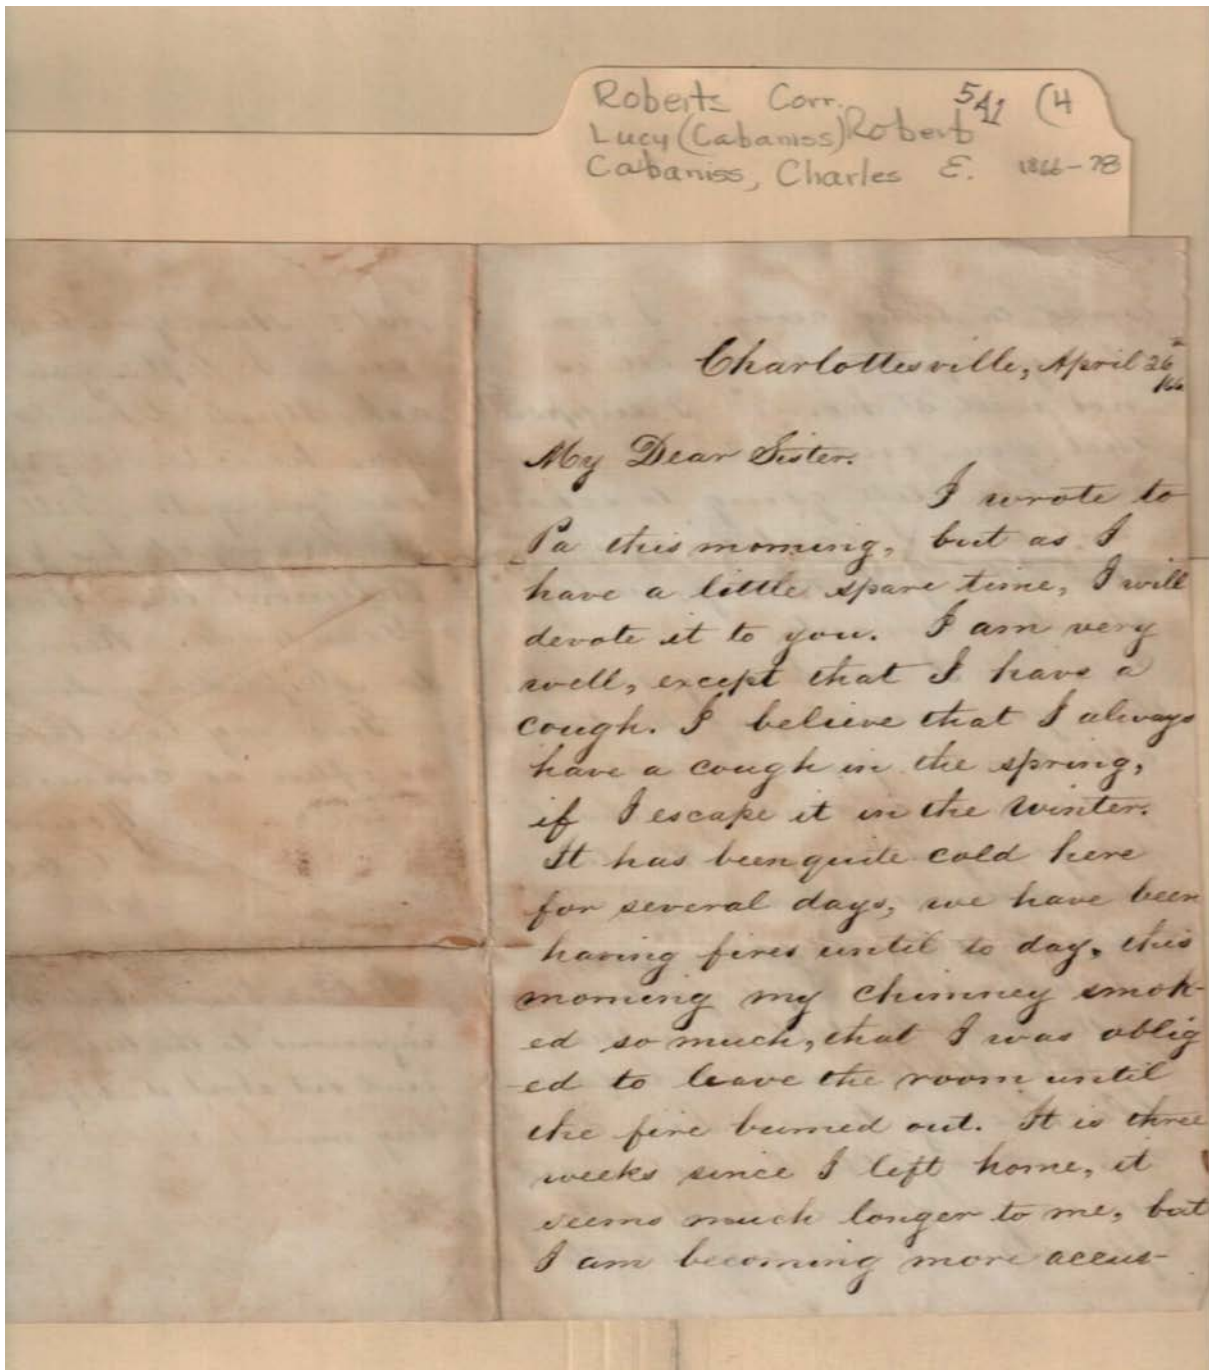 Roberts Corr. 541 (4
Lucy (Cabaniss) Roberts
Cabaniss, Charles E. 1866-78
Charlottesville, April 26th
/66
My Dear Sister.
I wrote to
Pa this morning, but as I
have a little spare time, I will
devote it to you. I am very
well, except that I have a
cough. I believe that I always
have a cough in the spring,
if I escape it in the winter.
It has been quite cold here
for several days, we have been
having fires until to day, this
morning my chimney smok-
ed so much, that I was oblig
-ed to leave the room until
the fire burned out. It is three
weeks since I left home, it
seems much longer to me, but
I am becoming more accus-